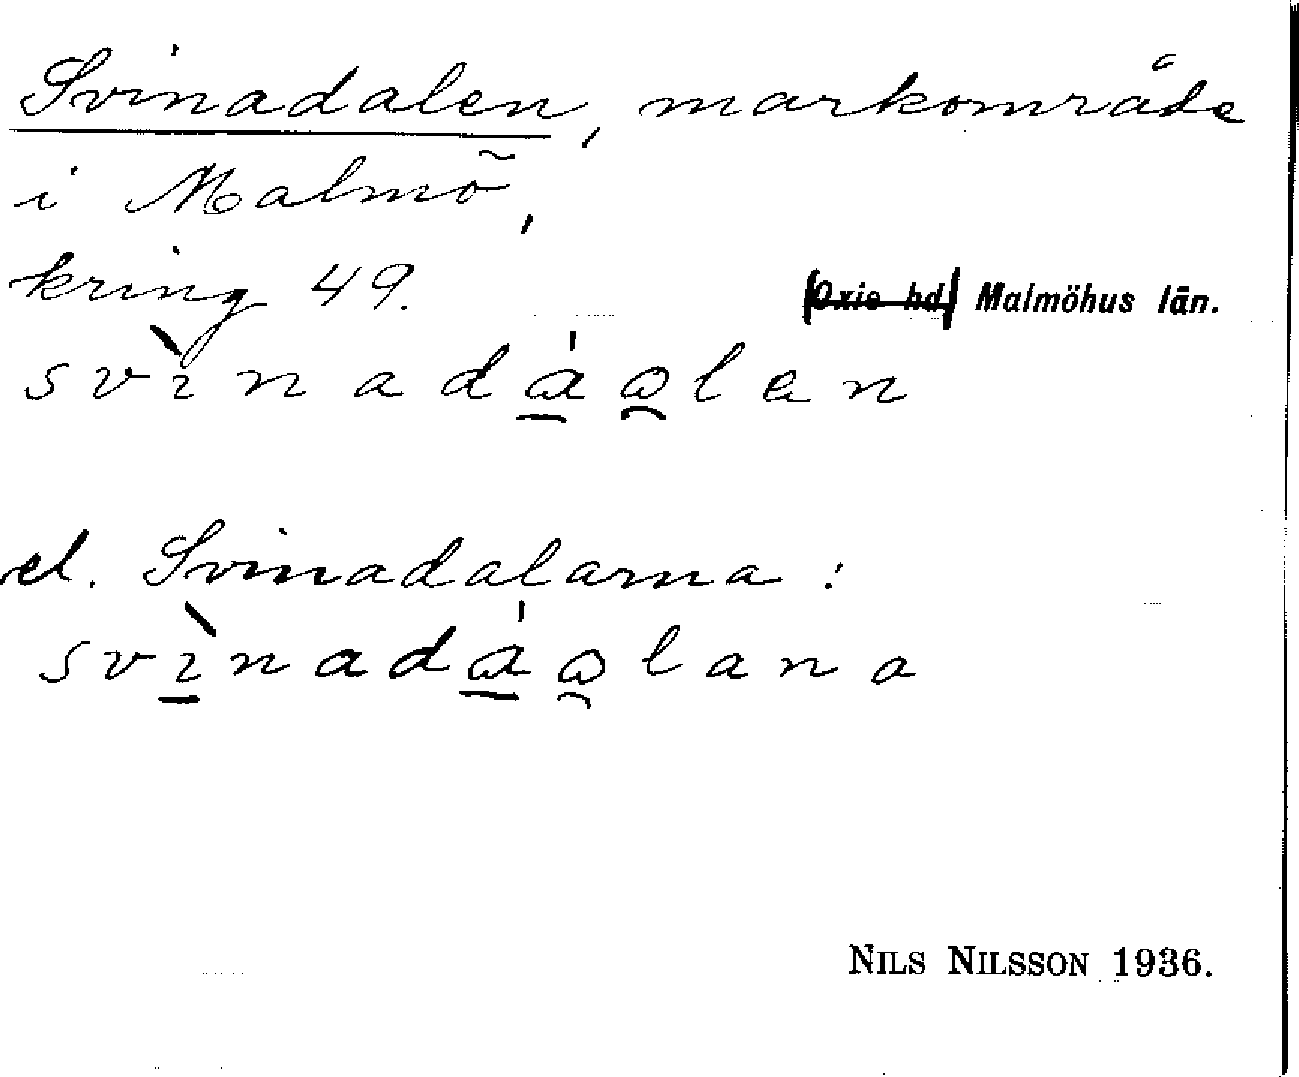 Svinadalen, markområde
i Malmö,
kring 49.
(Oxie hd) Malmöhus län.
svìnadáolen
el. Svinadalarna:
svìnadáolana
NILS NILSSON 1936.